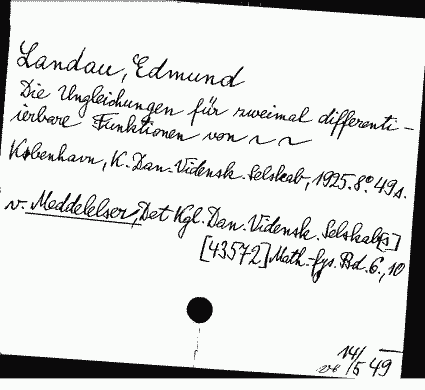 Landau, Edmund
Die Ungleichungen für zweimal differenti-
ierbare Funktionen von ~ ~
København, K. Dan. Vidensk. Selskab, 1925. 8º. 49 s.
v. Meddelelser, Det Kgl. Dan. Vidensk. Selskab[s]
[43572] Math.-fys. Bd. 6., 10
14/5 49